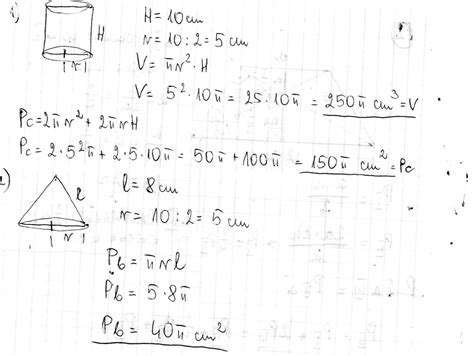 1)
H = 10cm
H
r = 10 : 2 = 5 cm
r
V = πr² · H
V = 5² · 10π = 25 · 10π = 250π cm³ = V
Pc = 2πr² + 2πrH
Pc = 2 · 5²π + 2 · 5 · 10π = 50π + 100π = 150π cm² = Pc
2)
l = 8cm
l
r = 10 : 2 = 5cm
r
Pb = πrl
Pb = 5 · 8π
Pb = 40π cm²